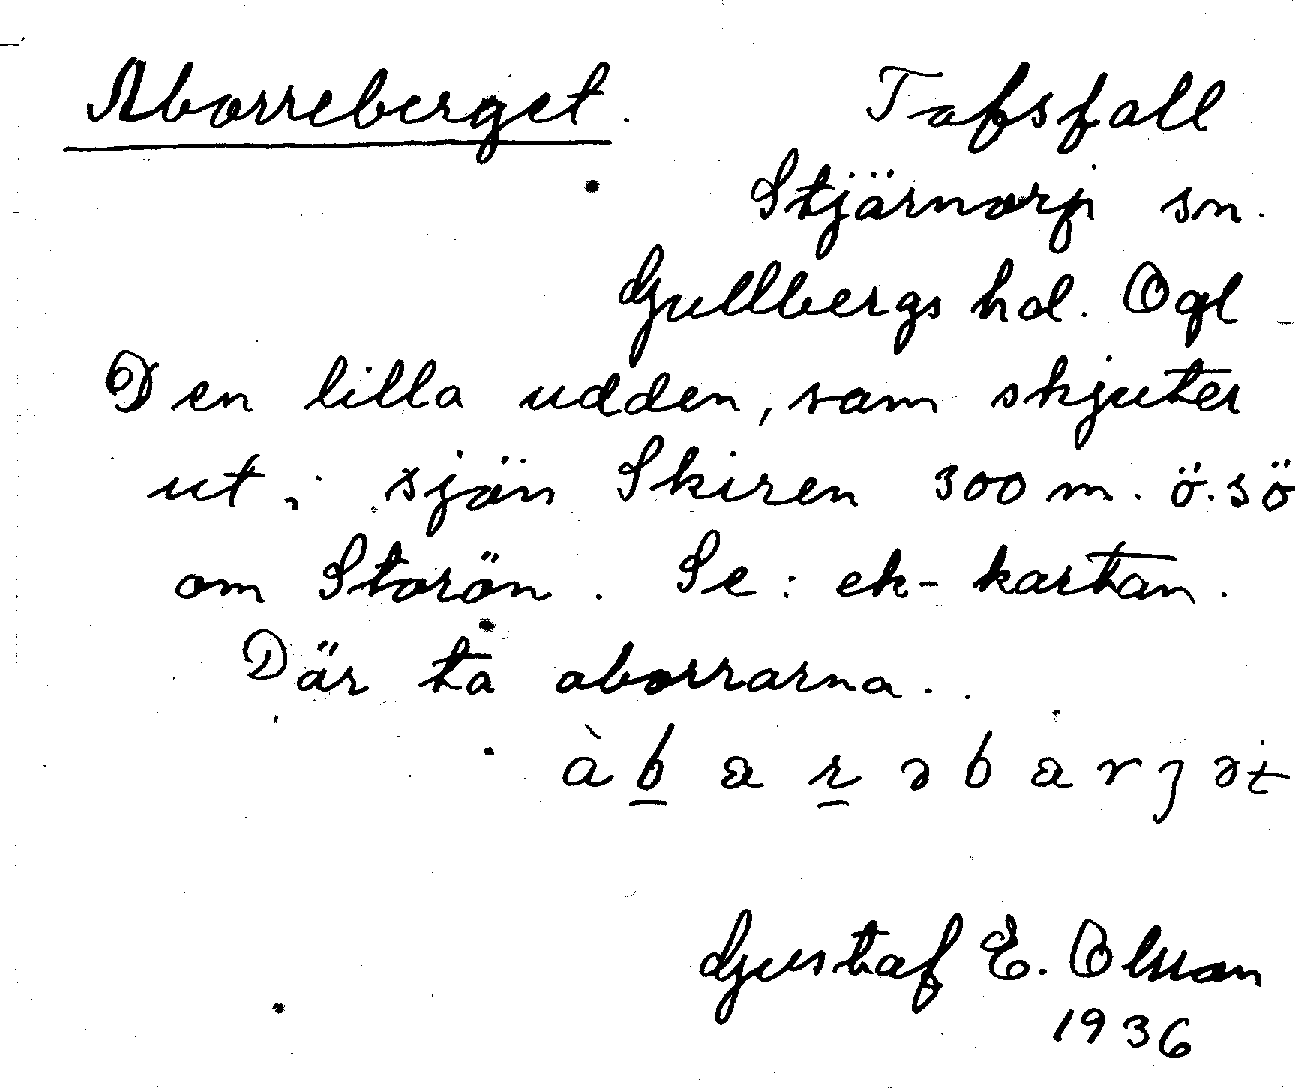 Aborreberget. Tafsfall
Stjärnorp sn.
Gullbergs hd. Ögl
Den lilla udden, som skjuter
ut i sjön Skiren 300 m. ö.sö
om Storön. Se: ek-kartan.
Där ta aborrarna.
Gustaf E. Olsson
1936